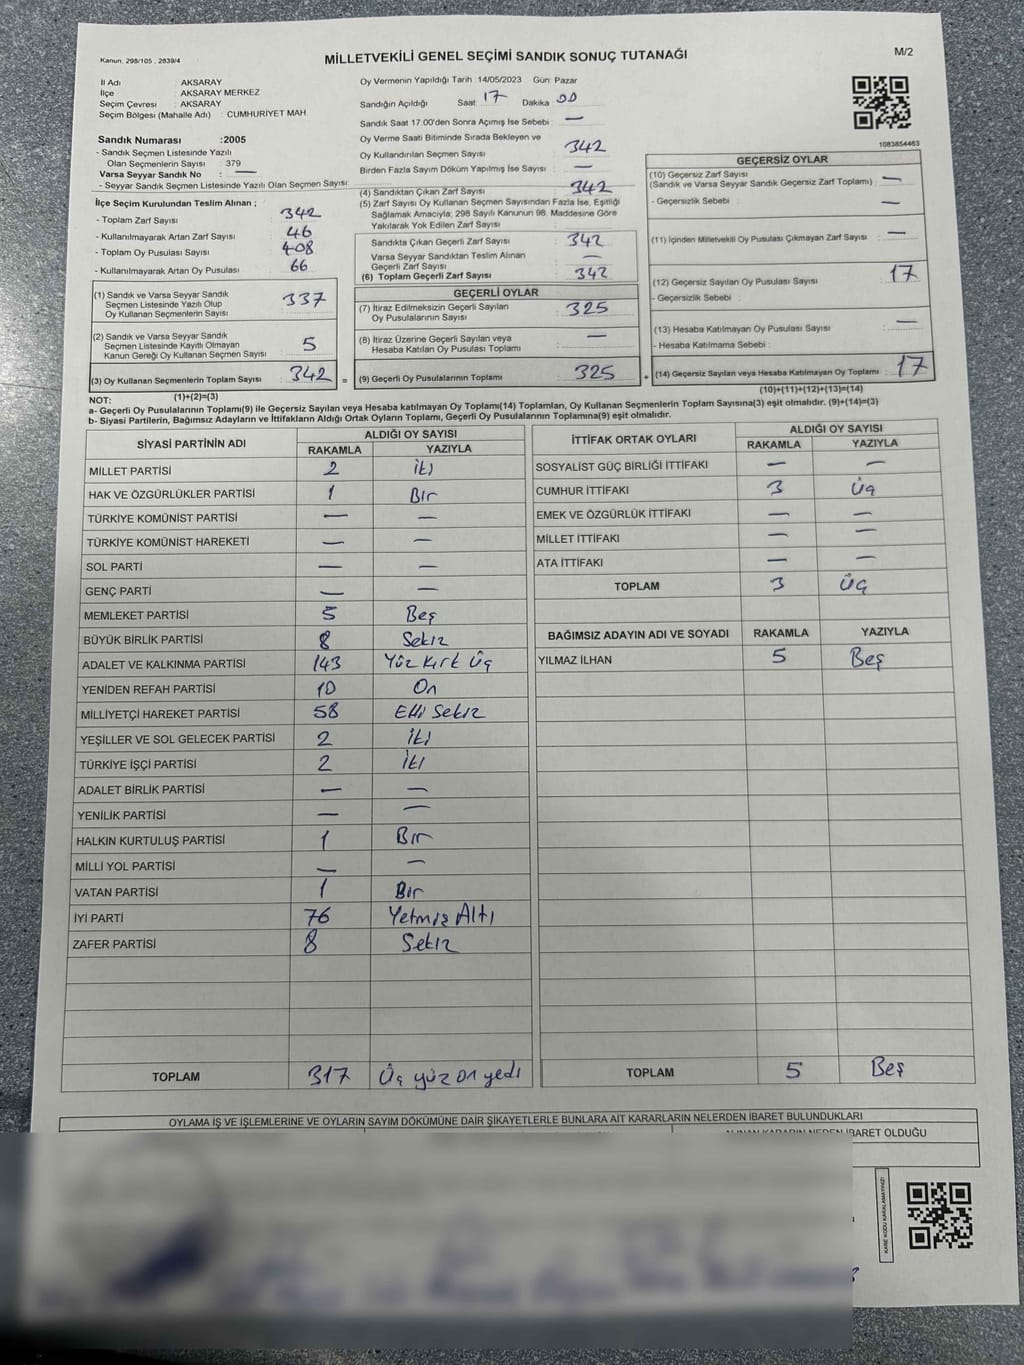 Kanun. 298/105 , 2839/4
MİLLETVEKİLİ GENEL SEÇİMİ SANDIK SONUÇ TUTANAĞI
M/2
İl Adı : AKSARAY
İlçe : AKSARAY MERKEZ
Seçim Çevresi : AKSARAY
Seçim Bölgesi (Mahalle Adı) : CUMHURİYET MAH
Sandık Numarası :2005
- Sandık Seçmen Listesinde Yazılı
Olan Seçmenlerin Sayısı : 379
Varsa Seyyar Sandık No : —
- Seyyar Sandık Seçmen Listesinde Yazılı Olan Seçmen Sayısı:
İlçe Seçim Kurulundan Teslim Alınan ;
- Toplam Zarf Sayısı : 342
- Kullanılmayarak Artan Zarf Sayısı : 46
- Toplam Oy Pusulası Sayısı : 408
- Kullanılmayarak Artan Oy Pusulası : 66
(1) Sandık ve Varsa Seyyar Sandık
Seçmen Listesinde Yazılı Olup
Oy Kullanan Seçmenlerin Sayısı : 337
(2) Sandık ve Varsa Seyyar Sandık
Seçmen Listesinde Kayıtlı Olmayan
Kanun Gereği Oy Kullanan Seçmen Sayısı : 5
(3) Oy Kullanan Seçmenlerin Toplam Sayısı : 342 =
(1)+(2)=(3)
Oy Vermenin Yapıldığı Tarih 14/05/2023 Gün: Pazar
Sandığın Açıldığı Saat: 17 Dakika 00
Sandık Saat 17.00'den Sonra Açımış İse Sebebi : —
Oy Verme Saati Bitiminde Sırada Bekleyen ve
Oy Kullandırılan Seçmen Sayısı : 342
Birden Fazla Sayım Döküm Yapılmış İse Sayısı : —
(4) Sandıktan Çıkan Zarf Sayısı : 342
(5) Zarf Sayısı Oy Kullanan Seçmen Sayısından Fazla İse, Eşitliği
Sağlamak Amacıyla; 298 Sayılı Kanunun 98. Maddesine Göre
Yakılarak Yok Edilen Zarf Sayısı :
Sandıkta Çıkan Geçerli Zarf Sayısı : 342
Varsa Seyyar Sandıktan Teslim Alınan
Geçerli Zarf Sayısı : —
(6) Toplam Geçerli Zarf Sayısı : 342
GEÇERLİ OYLAR
(7) İtiraz Edilmeksizin Geçerli Sayılan
Oy Pusulalarının Sayısı : 325
(8) İtiraz Üzerine Geçerli Sayılan veya
Hesaba Katılan Oy Pusulası Toplamı : —
(9) Geçerli Oy Pusulalarının Toplamı : 325 +
1083854463
GEÇERSİZ OYLAR
(10) Geçersiz Zarf Sayısı
(Sandık ve Varsa Seyyar Sandık Geçersiz Zarf Toplamı) : —
- Geçersizlik Sebebi : —
(11) İçinden Milletvekili Oy Pusulası Çıkmayan Zarf Sayısı : —
(12) Geçersiz Sayılan Oy Pusulası Sayısı : 17
- Geçersizlik Sebebi :
(13) Hesaba Katılmayan Oy Pusulası Sayısı : —
- Hesaba Katılmama Sebebi :
(14) Geçersiz Sayılan veya Hesaba Katılmayan Oy Toplamı : 17
(10)+(11)+(12)+(13)=(14)
NOT:
a- Geçerli Oy Pusulalarının Toplamı(9) ile Geçersiz Sayılan veya Hesaba katılmayan Oy Toplamı(14) Toplamları, Oy Kullanan Seçmenlerin Toplam Sayısına(3) eşit olmalıdır. (9)+(14)=(3)
b- Siyasi Partilerin, Bağımsız Adayların ve İttifakların Aldığı Ortak Oyların Toplamı, Geçerli Oy Pusulalarının Toplamına(9) eşit olmalıdır.
SİYASİ PARTİNİN ADI ALDIĞI OY SAYISI
RAKAMLA YAZIYLA
MİLLET PARTİSİ 2 İki
HAK VE ÖZGÜRLÜKLER PARTİSİ 1 Bir
TÜRKİYE KOMÜNİST PARTİSİ — —
TÜRKİYE KOMÜNİST HAREKETİ — —
SOL PARTİ — —
GENÇ PARTİ — —
MEMLEKET PARTİSİ 5 Beş
BÜYÜK BİRLİK PARTİSİ 8 Sekiz
ADALET VE KALKINMA PARTİSİ 143 Yüz Kırk Üç
YENİDEN REFAH PARTİSİ 10 On
MİLLİYETÇİ HAREKET PARTİSİ 58 Elli Sekiz
YEŞİLLER VE SOL GELECEK PARTİSİ 2 İki
TÜRKİYE İŞÇİ PARTİSİ 2 İki
ADALET BİRLİK PARTİSİ — —
YENİLİK PARTİSİ — —
HALKIN KURTULUŞ PARTİSİ 1 Bir
MİLLİ YOL PARTİSİ — —
VATAN PARTİSİ 1 Bir
İYİ PARTİ 76 Yetmiş Altı
ZAFER PARTİSİ 8 Sekiz
TOPLAM 317 Üç yüz on yedi
İTTİFAK ORTAK OYLARI ALDIĞI OY SAYISI
RAKAMLA YAZIYLA
SOSYALİST GÜÇ BİRLİĞİ İTTİFAKI — —
CUMHUR İTTİFAKI 3 Üç
EMEK VE ÖZGÜRLÜK İTTİFAKI — —
MİLLET İTTİFAKI — —
ATA İTTİFAKI — —
TOPLAM 3 Üç
BAĞIMSIZ ADAYIN ADI VE SOYADI RAKAMLA YAZIYLA
YILMAZ İLHAN 5 Beş
TOPLAM 5 Beş
OYLAMA İŞ VE İŞLEMLERİNE VE OYLARIN SAYIM DÖKÜMÜNE DAİR ŞİKAYETLERLE BUNLARA AİT KARARLARIN NELERDEN İBARET BULUNDUKLARI
ALINAN KARARIN NEDEN İBARET OLDUĞU
KARE KODU KARALAMAYINIZ!